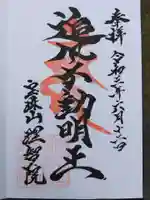 奉拝 令和三年六月十二日
追風不動明王
宝珠山 理智院